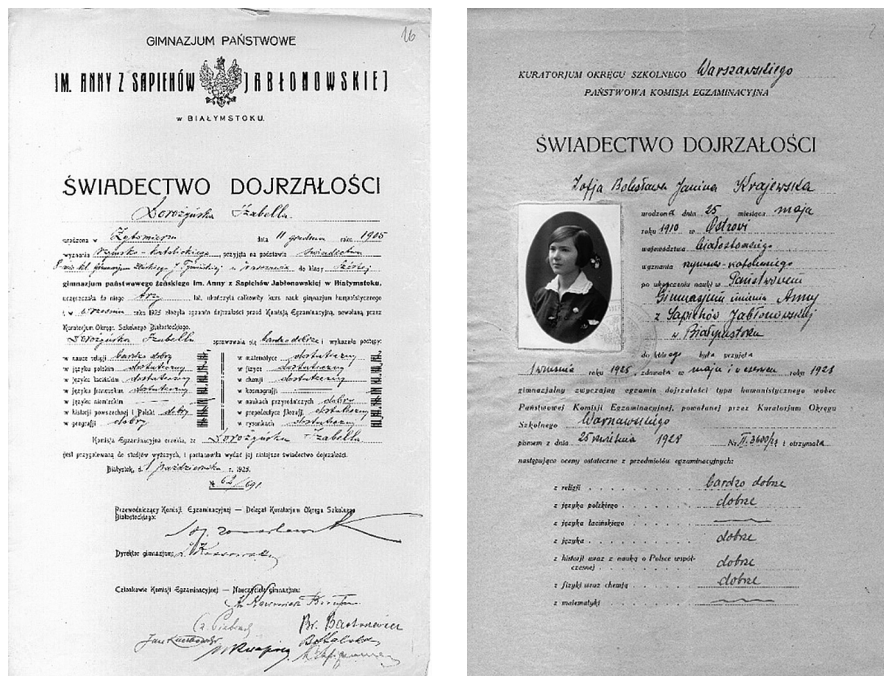 16
GIMNAZJUM PAŃSTWOWE
IM. ANNY Z SAPIEHÓW JABŁONOWSKIEJ
w BIAŁYMSTOKU.
ŚWIADECTWO DOJRZAŁOŚCI
Izabella
urodzona w Żytomierzu dnia 11 grudnia roku 1905
wyznania Rzymsko-katolickiego przyjęta na podstawie świadectwa
do klasy
gimnazjum państwowego żeńskiego im. Anny z Sapiehów Jabłonowskiej w Białymstoku,
uczęszczała do niego trzy lat, ukończyła całkowity kurs nauk gimnazjum humanistycznego
i w wrześniu roku 1925 złożyła egzamin dojrzałości przed Komisją Egzaminacyjną, powołaną przez
Kuratorjum Okręgu Szkolnego Białostockiego.
Izabella sprawowała się bardzo dobrze i wykazała postępy:
w nauce religji bardzo dobry
w języku polskim dostateczny
w języku łacińskim dostateczny
w języku francuskim dostateczny
w języku niemieckim
w historji powszechnej i Polski dobry
w geografji dobry
w matematyce dostateczny
w fizyce dostateczny
w chemji dostateczny
w kosmografji
w naukach przyrodniczych dobry
w propedeutyce filozofji dostateczny
w rysunkach dostateczny
Komisja Egzaminacyjna orzekła, że Izabella
jest przygotowaną do studjów wyższych, i postanowiła wydać jej niniejsze świadectwo dojrzałości.
Białystok, d. 1 października r. 1925.
Przewodniczący Komisji Egzaminacyjnej — Delegat Kuratorjum Okręgu Szkolnego
Białostockiego:
Dyrektor gimnazjum:
Członkowie Komisji Egzaminacyjnej — Nauczyciele gimnazjum:
KURATORJUM OKRĘGU SZKOLNEGO Warszawskiego
PAŃSTWOWA KOMISJA EGZAMINACYJNA
ŚWIADECTWO DOJRZAŁOŚCI
Zofja Bolesława Janina Krajewska
urodzona dnia 25 miesiąca maja
roku 1910 w Ostrowi
województwa białostockiego
wyznania rzymsko-katolickiego
po ukończeniu nauki w Państwowem
Gimnazjum imienia Anny
z Sapiehów Jabłonowskiej
w Białymstoku
do którego była przyjęta
1 września roku 1925, zdawała w maju i czerwcu roku 1928
gimnazjalny zwyczajny egzamin dojrzałości typu humanistycznego wobec
Państwowej Komisji Egzaminacyjnej, powołanej przez Kuratorjum Okręgu
Szkolnego Warszawskiego
pismem z dnia 25 kwietnia 1928 Nr. i otrzymała
następujące oceny ostateczne z przedmiotów egzaminacyjnych:
z religji bardzo dobrze
z języka polskiego dobrze
z języka łacińskiego
z języka dobrze
z historji wraz z nauką o Polsce współczesnej dobrze
z fizyki wraz z chemją dobrze
z matematyki